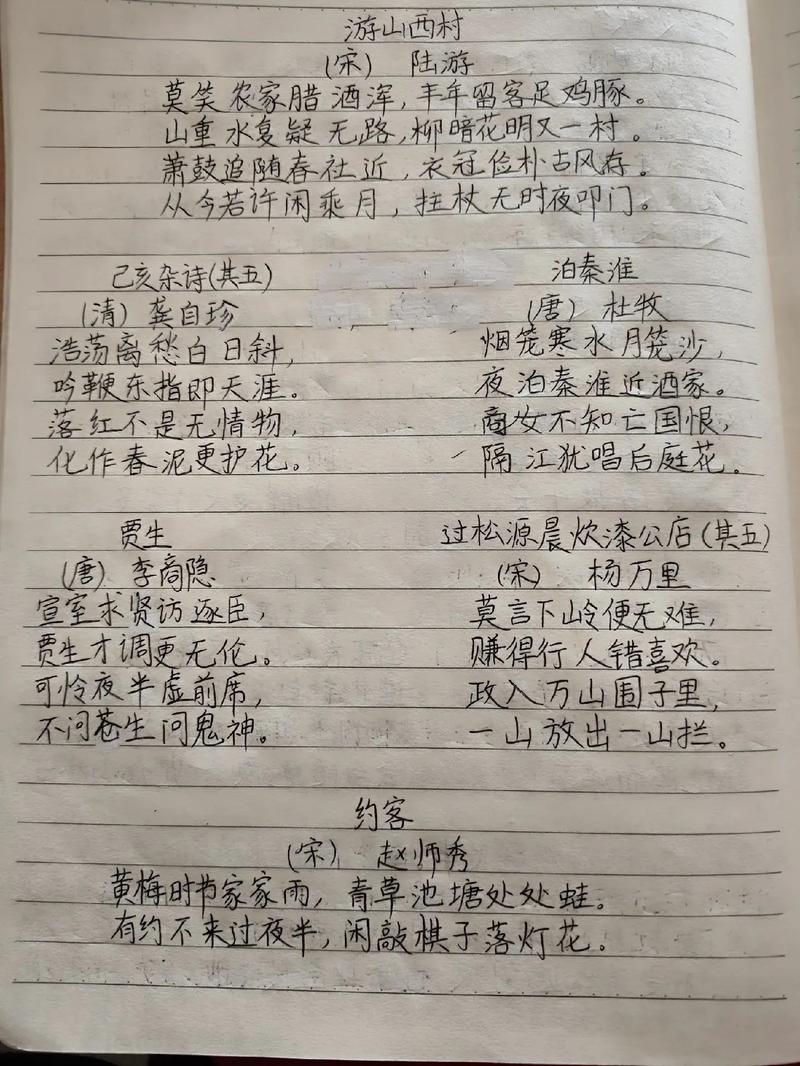 游山西村
(宋) 陆游
莫笑农家腊酒浑,丰年留客足鸡豚。
山重水复疑无路,柳暗花明又一村。
萧鼓追随春社近,衣冠俭朴古风存。
从今若许闲乘月,拄杖无时夜叩门。
己亥杂诗(其五)
(清) 龚自珍
浩荡离愁白日斜,
吟鞭东指即天涯。
落红不是无情物,
化作春泥更护花。
泊秦淮
(唐) 杜牧
烟笼寒水月笼沙,
夜泊秦淮近酒家。
商女不知亡国恨,
隔江犹唱后庭花。
贾生
(唐) 李商隐
宣室求贤访逐臣,
贾生才调更无伦。
可怜夜半虚前席,
不问苍生问鬼神。
过松源晨炊漆公店(其五)
(宋) 杨万里
莫言下岭便无难,
赚得行人错喜欢。
政入万山围子里,
一山放出一山拦。
约客
(宋) 赵师秀
黄梅时节家家雨,青草池塘处处蛙。
有约不来过夜半,闲敲棋子落灯花。